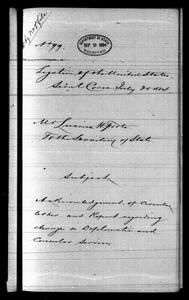 No 99.
DEPARTMENT OF STATE
SEP 10 1884
RECEIVED
Legation of the United States,
Seoul Corea July 30 1884.
Mr Lucius H Foote
To the Secretary of State
Subject
Acknowledgment of Circular
letter and Report regarding
change in Diplomatic and
Consular Service.